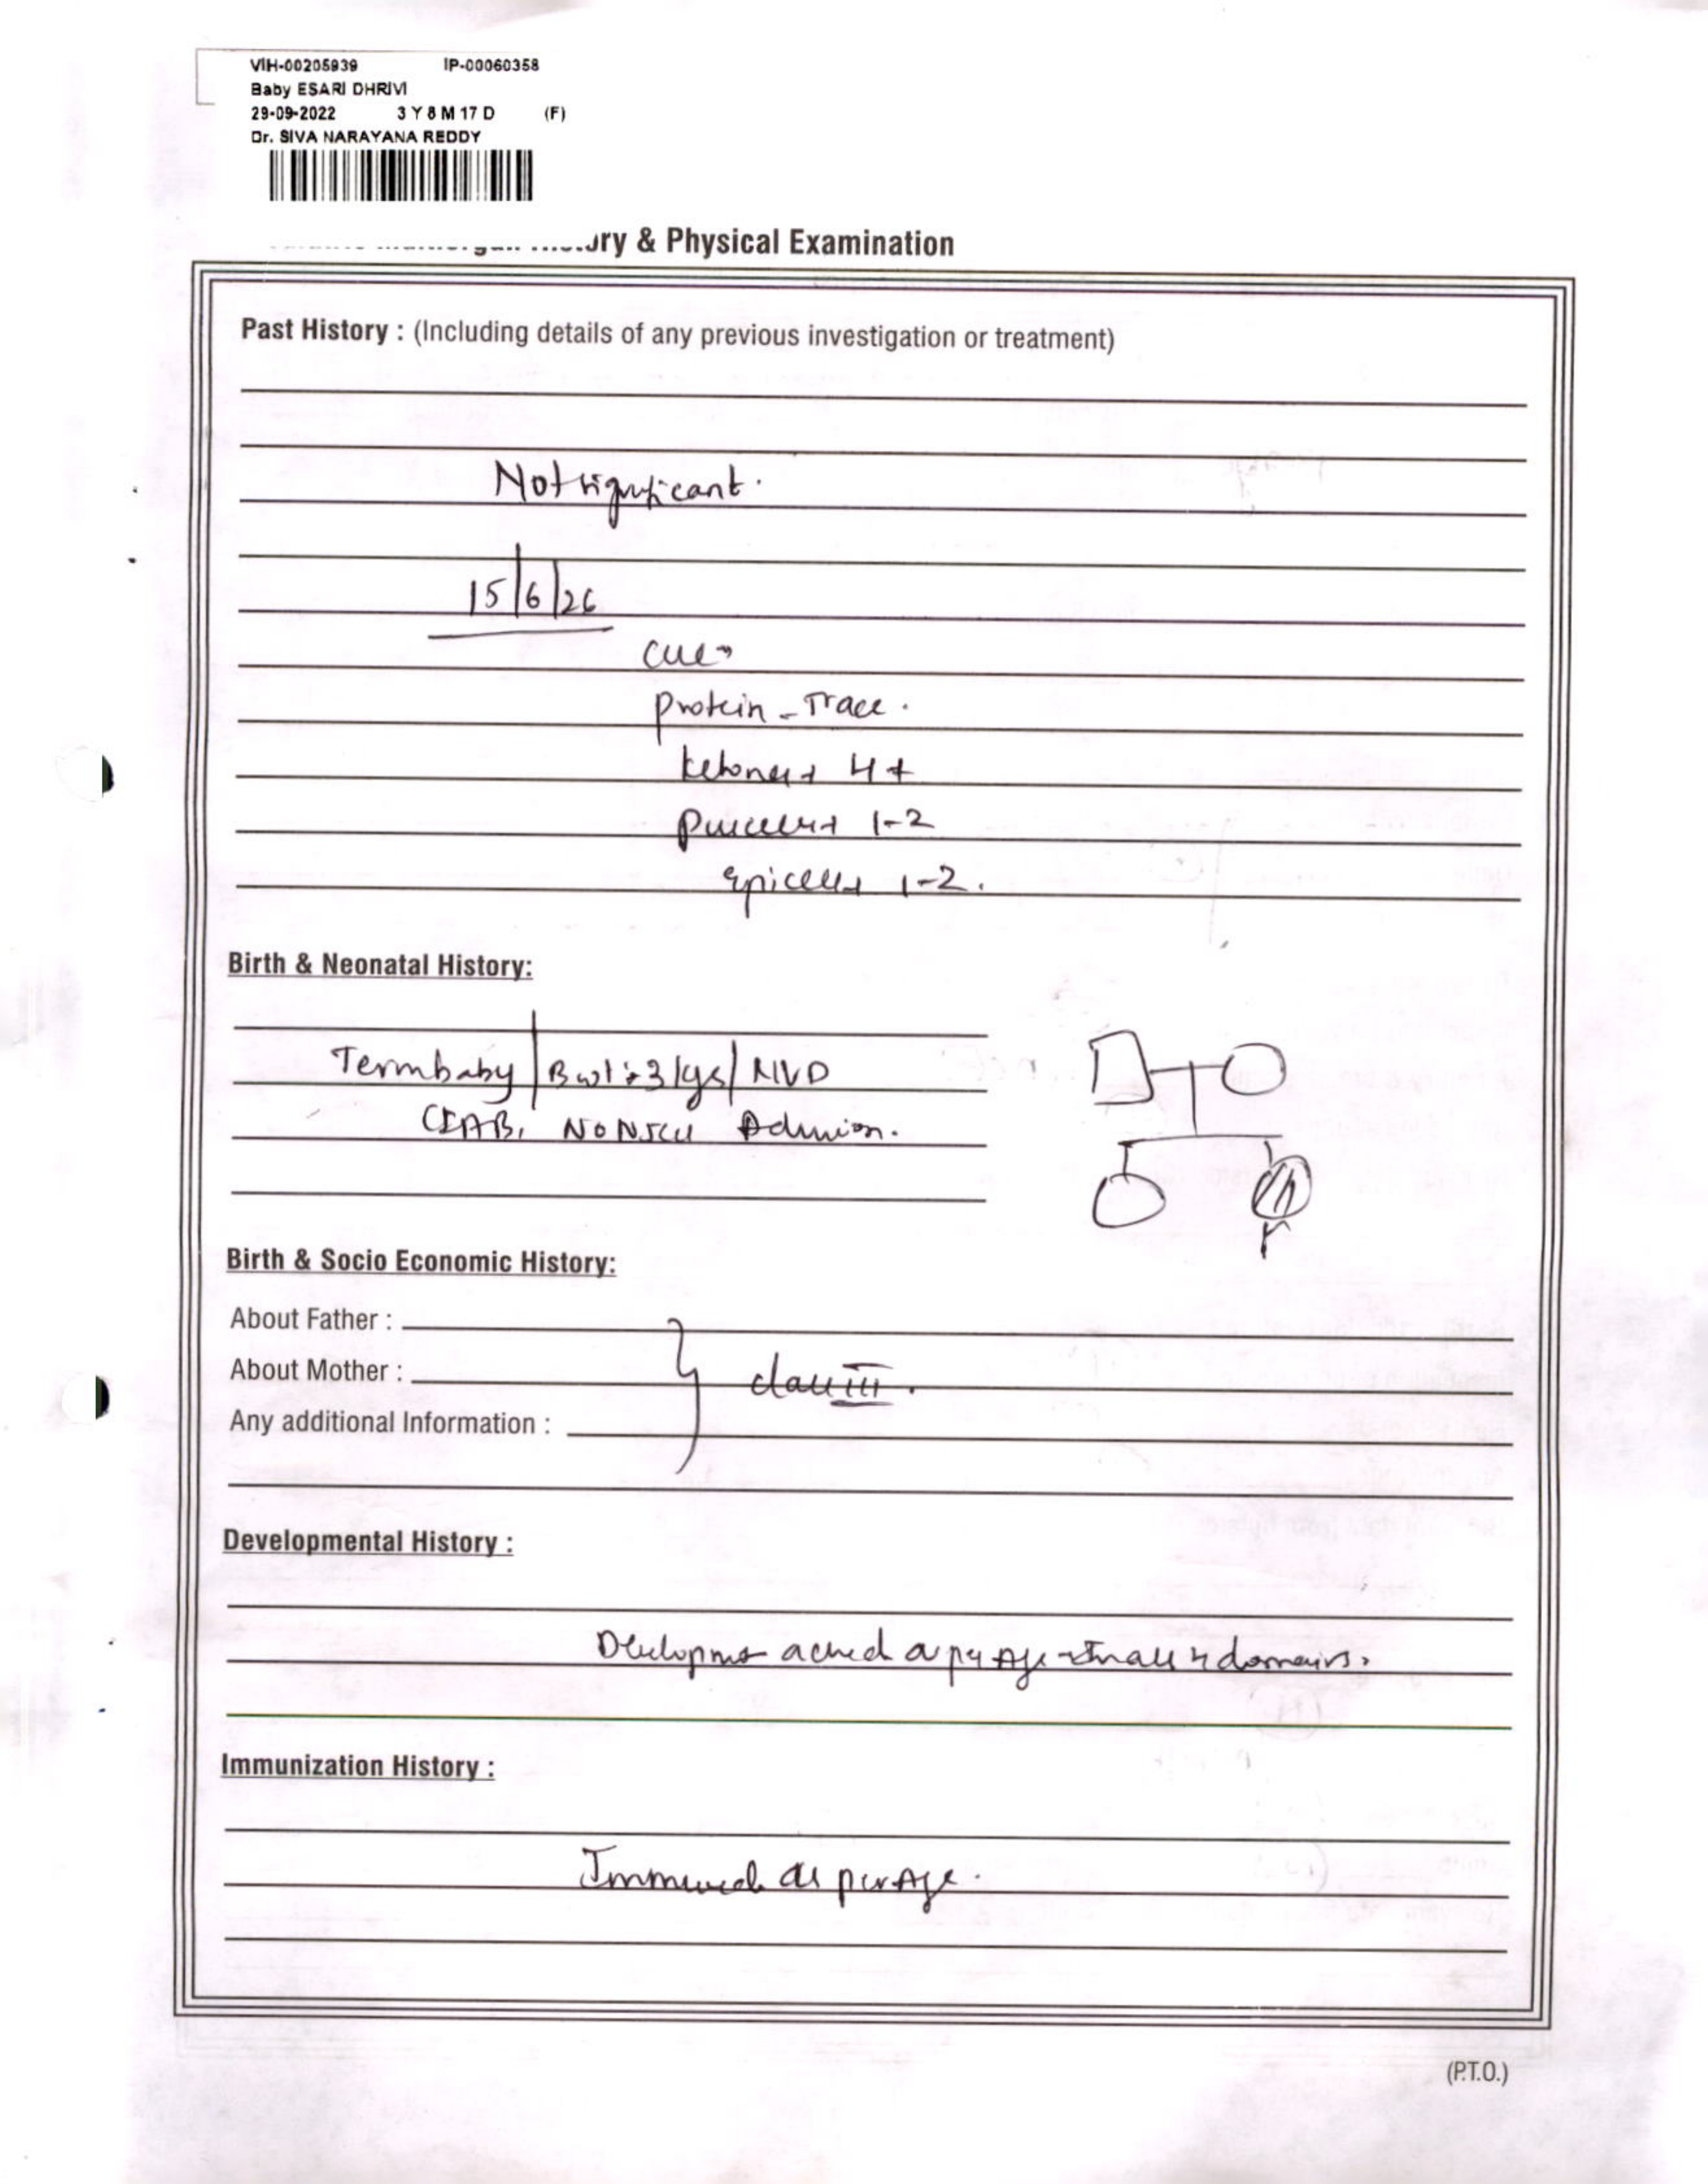 VIH-00205939 IP-00060358
Baby ESARI DHRIVI
29-09-2022 3 Y 8 M 17 D (F)
Dr. SIVA NARAYANA REDDY
& Physical Examination
Past History : (Including details of any previous investigation or treatment)
Not significant.
15/6/26
CUE
protein - Trace.
ketones 4+
puscells 1-2
epicells 1-2.
Birth & Neonatal History:
Term baby / B.wt: 3 kgs / NVD
CIAB, NO NICU Admission.
Birth & Socio Economic History:
About Father :
About Mother :
class III.
Any additional Information :
Developmental History :
as per Age in all 4 domains.
Immunization History :
as per Age.
(P.T.O.)